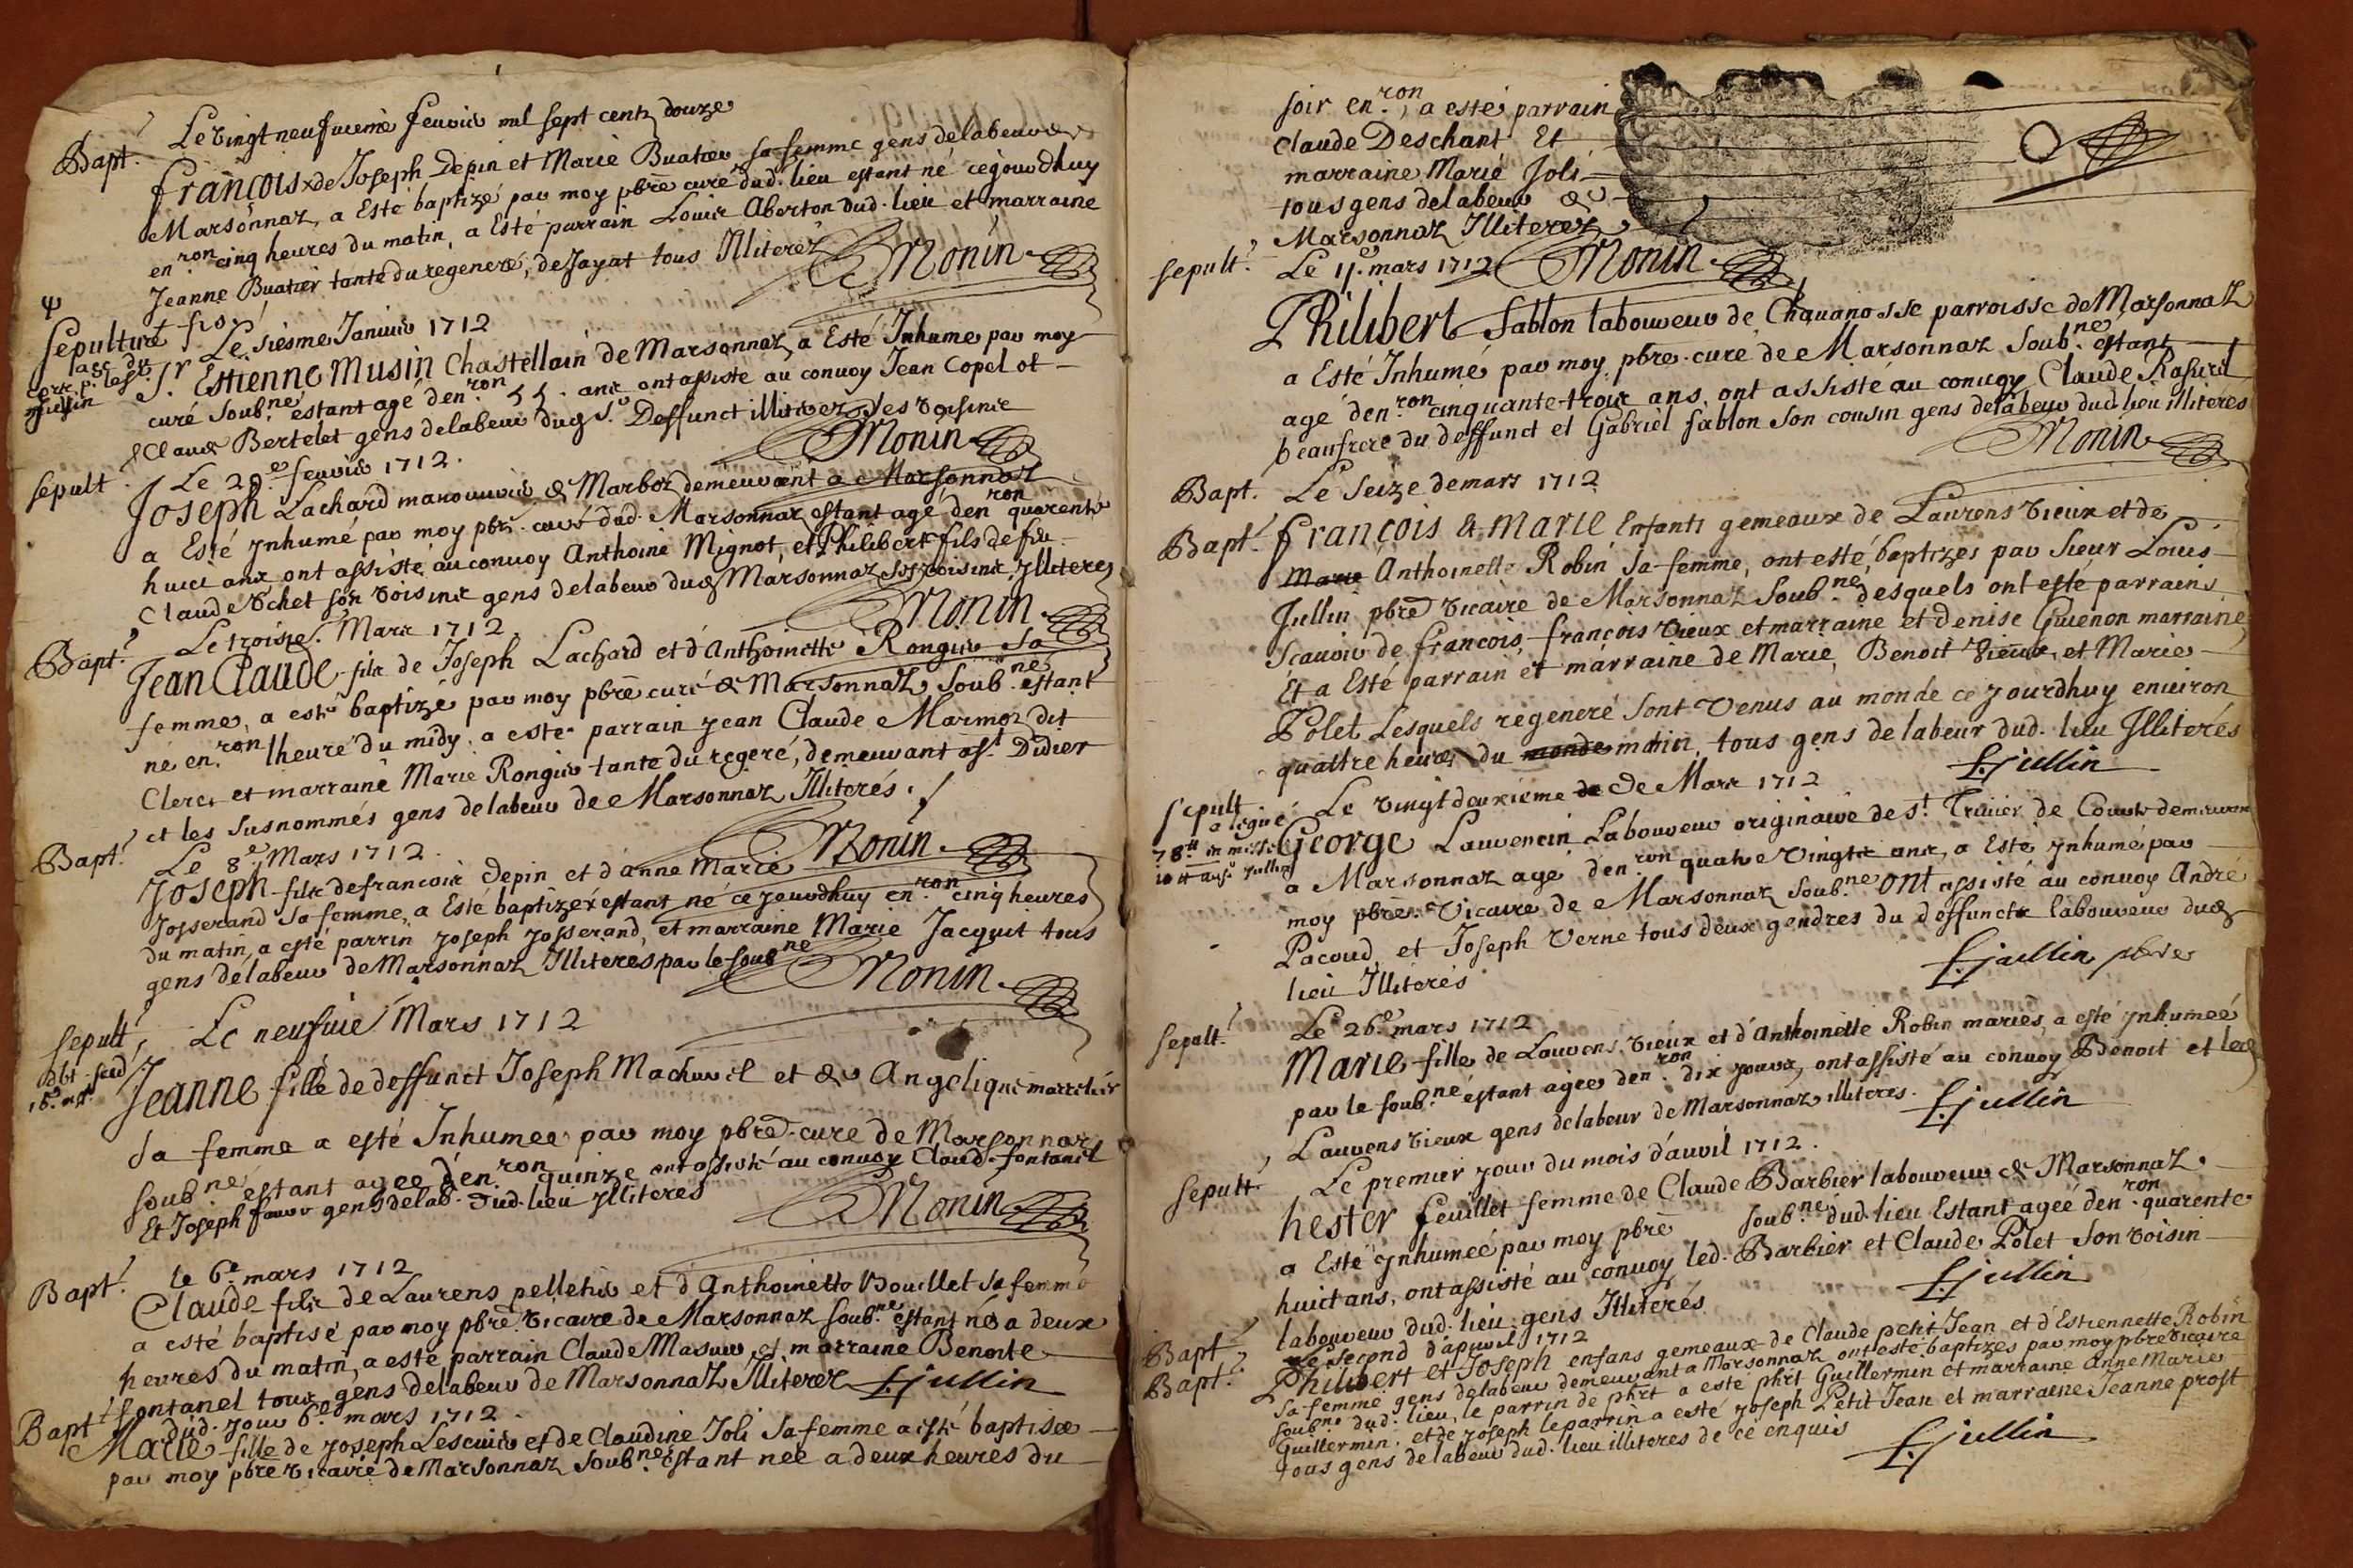 Bapt. Le vingt neufuieme feurier mil sept centz douze
françois de Joseph Depin et Marie Buatier sa femme gens de labeur de
Marsonnaz, a Esté baptizé par moy pbre curé dud. lieu estant né cejourdhuy
en.ron cinq heures du matin, a Esté parrain Louis Aberton dud. lieu et marraine
Jeanne Buatier tante du regeneré, de Jayat tous Illiterez Monin
Sepulture Le siesme Januier 1712
Sr. Estienne Musin Chastellain de Marsonnaz, a Esté Inhumé par moy
curé soub.né estant agé den.ron 55. ans ont assisté au conuoy Jean Copelot
Claude Bertelet gens de labeur dud Sr. Deffunct illiterez ses voisins
Monin
sepult. Le 29.e feurier 1712.
Joseph Lachard manouurier de Marboz demeurant a Marsonnaz
a Esté ynhumé par moy pbre. curé dud. Marsonnaz estant agé den.ron quarente
huict ans ont assisté au conuoy Anthoine Mignot, et Philibert fils de feu
Claude Vchet son voisins gens de labeur dud Marsonnaz ses voisins Illiteres
Monin
Bapt. Le troisie. Mars 1712
Jean Claude fils de Joseph Lachard et d'Anthoinette Rongier sa
femme, a esté baptizé par moy pbre curé de Marsonnaz soub.né estant
né en.ron lheure du midy, a esté parrain jean Claude Marmoz dit
Clerc, et marraine Marie Rongier tante du regeré, demeurant a st. Didier
et les susnommés gens de labeur de Marsonnaz Illiterés.
Monin
Bapt. Le 8.e Mars 1712.
Joseph fils de francois Depin et d'anne Marie
Josserand sa femme, a Esté baptizé estant né ce jourdhuy en.ron cinq heures
du matin, a esté parrin Joseph Josserand, et marraine Marie Jacquit tous
gens de labeur de Marsonnaz Illiteres par le soub.né Monin
sepult. Le neufuie Mars 1712
Jeanne fille de deffunct Joseph Machurel et de Angelique marrelier
sa femme a esté Inhumee par moy pbre. cure de Marsonnaz
soub.né estant agee den.ron quinze ont assisté au conuoy Claud. fontanel
Et Joseph gens de lab. dud. lieu Illiteres
Monin
Bapt. le 6.e mars 1712
Claude fils de Laurens pelletier et d'Anthoinette Bouillet sa femme
a esté baptisé par moy pbre. vicaire de Marsonnaz soub.né estant né a deux
heures du matin, a esté parrain Claude Masuir et marraine Benoite
fontanel tous gens de labeur de Marsonnaz Illiterez L. jullin
Bapt dud. jour 6.e mars 1712.
Marie fille de joseph Lescuier et de Claudine Joli sa femme a esté baptisée
par moy pbre vicaire de Marsonnaz soub.né estant nee a deux heures du
soir en.ron, a esté parrain
Claude Deschant Et
marraine Marie Joli
tous gens de labeur de
Marsonnaz Illiterez
sepult. Le 11.e mars 1712 Monin
Philibert sablon laboureur de Chauanosse parroisse de Marsonnaz
a Esté Inhumé par moy, pbre. curé de Marsonnaz soub.né estant
agé den.ron cinquante-trois ans, ont assisté au conuoy Claude Rafurel
beaufrere du deffunct et Gabriel sablon son cousin gens de labeur dud. lieu illiteres
Monin
Bapt. Le seize de mars 1712
Bapt. francois & marie Enfants gemeaux de Laurens vieux et de
Marie Anthoinette Robin sa femme, ont esté baptizes par sieur Louis
Jullin pbre vicaire de Marsonnaz soub.né desquels ont esté parrains
scauoir de francois, francois vieux et marraine et denise Guienon marraine
Et a Esté parrain et marraine de Marie, Benoit vieux, et Marie
Polet Lesquels regeneré sont venus au monde ce jourdhuy enuiron
quattre heures du monde matin, tous gens de labeur dud. lieu Illiterés
L. jullin
sepult Le vingt deuxieme de De Mars 1712
George Laurencin Laboureur originaire de st. Triuier de Courte demeurant
a Marsonnaz agé den.ron quatre vingts ans, a Esté ynhumé par
moy pbre. vicaire de Marsonnaz soub.né ont assisté au conuoy André
Pacoud, et Joseph Verne tous deux gendres du deffunct laboureur dud
lieu Illiterés L. jullin pbre
sepult. Le 26.e mars 1712
Marie fille de Laurens vieux et d'Anthoinette Robin mariés, a esté ynhumeé
par le soub.né estant agee den.ron dix jours, ont assisté au conuoy Benoit et led
Laurens vieux gens de labeur de Marsonnaz illiteres. L. jullin
sepult Le premier jour du mois d'auril 1712.
hester feuillet femme de Claude Barbier laboureur de Marsonnaz.
a Esté ynhumeé par moy pbre soub.né dud. lieu Estant ageé den.ron quarente
huict ans, ont assisté au conuoy led. Barbier et Claude Polet son voisin
laboureur dud. lieu gens Illiterés L. jullin
Bapt Le second d'apuril 1712
Bapt. Philibert et Joseph enfans gemeaux de Claude petit Jean et d'Estiennette Robin
sa femme gens de labeur demeurant a Marsonnaz ont esté baptizes par moy pbre vicaire
soub.né dud. lieu, le parrin de phrt a esté phrt Guillermin et marraine anne Marie
Guillermin, et de joseph le parrin a esté joseph Petit Jean et marraine Jeanne prost
tous gens de labeur dud. lieu illiteres de ce enquis L. jullin